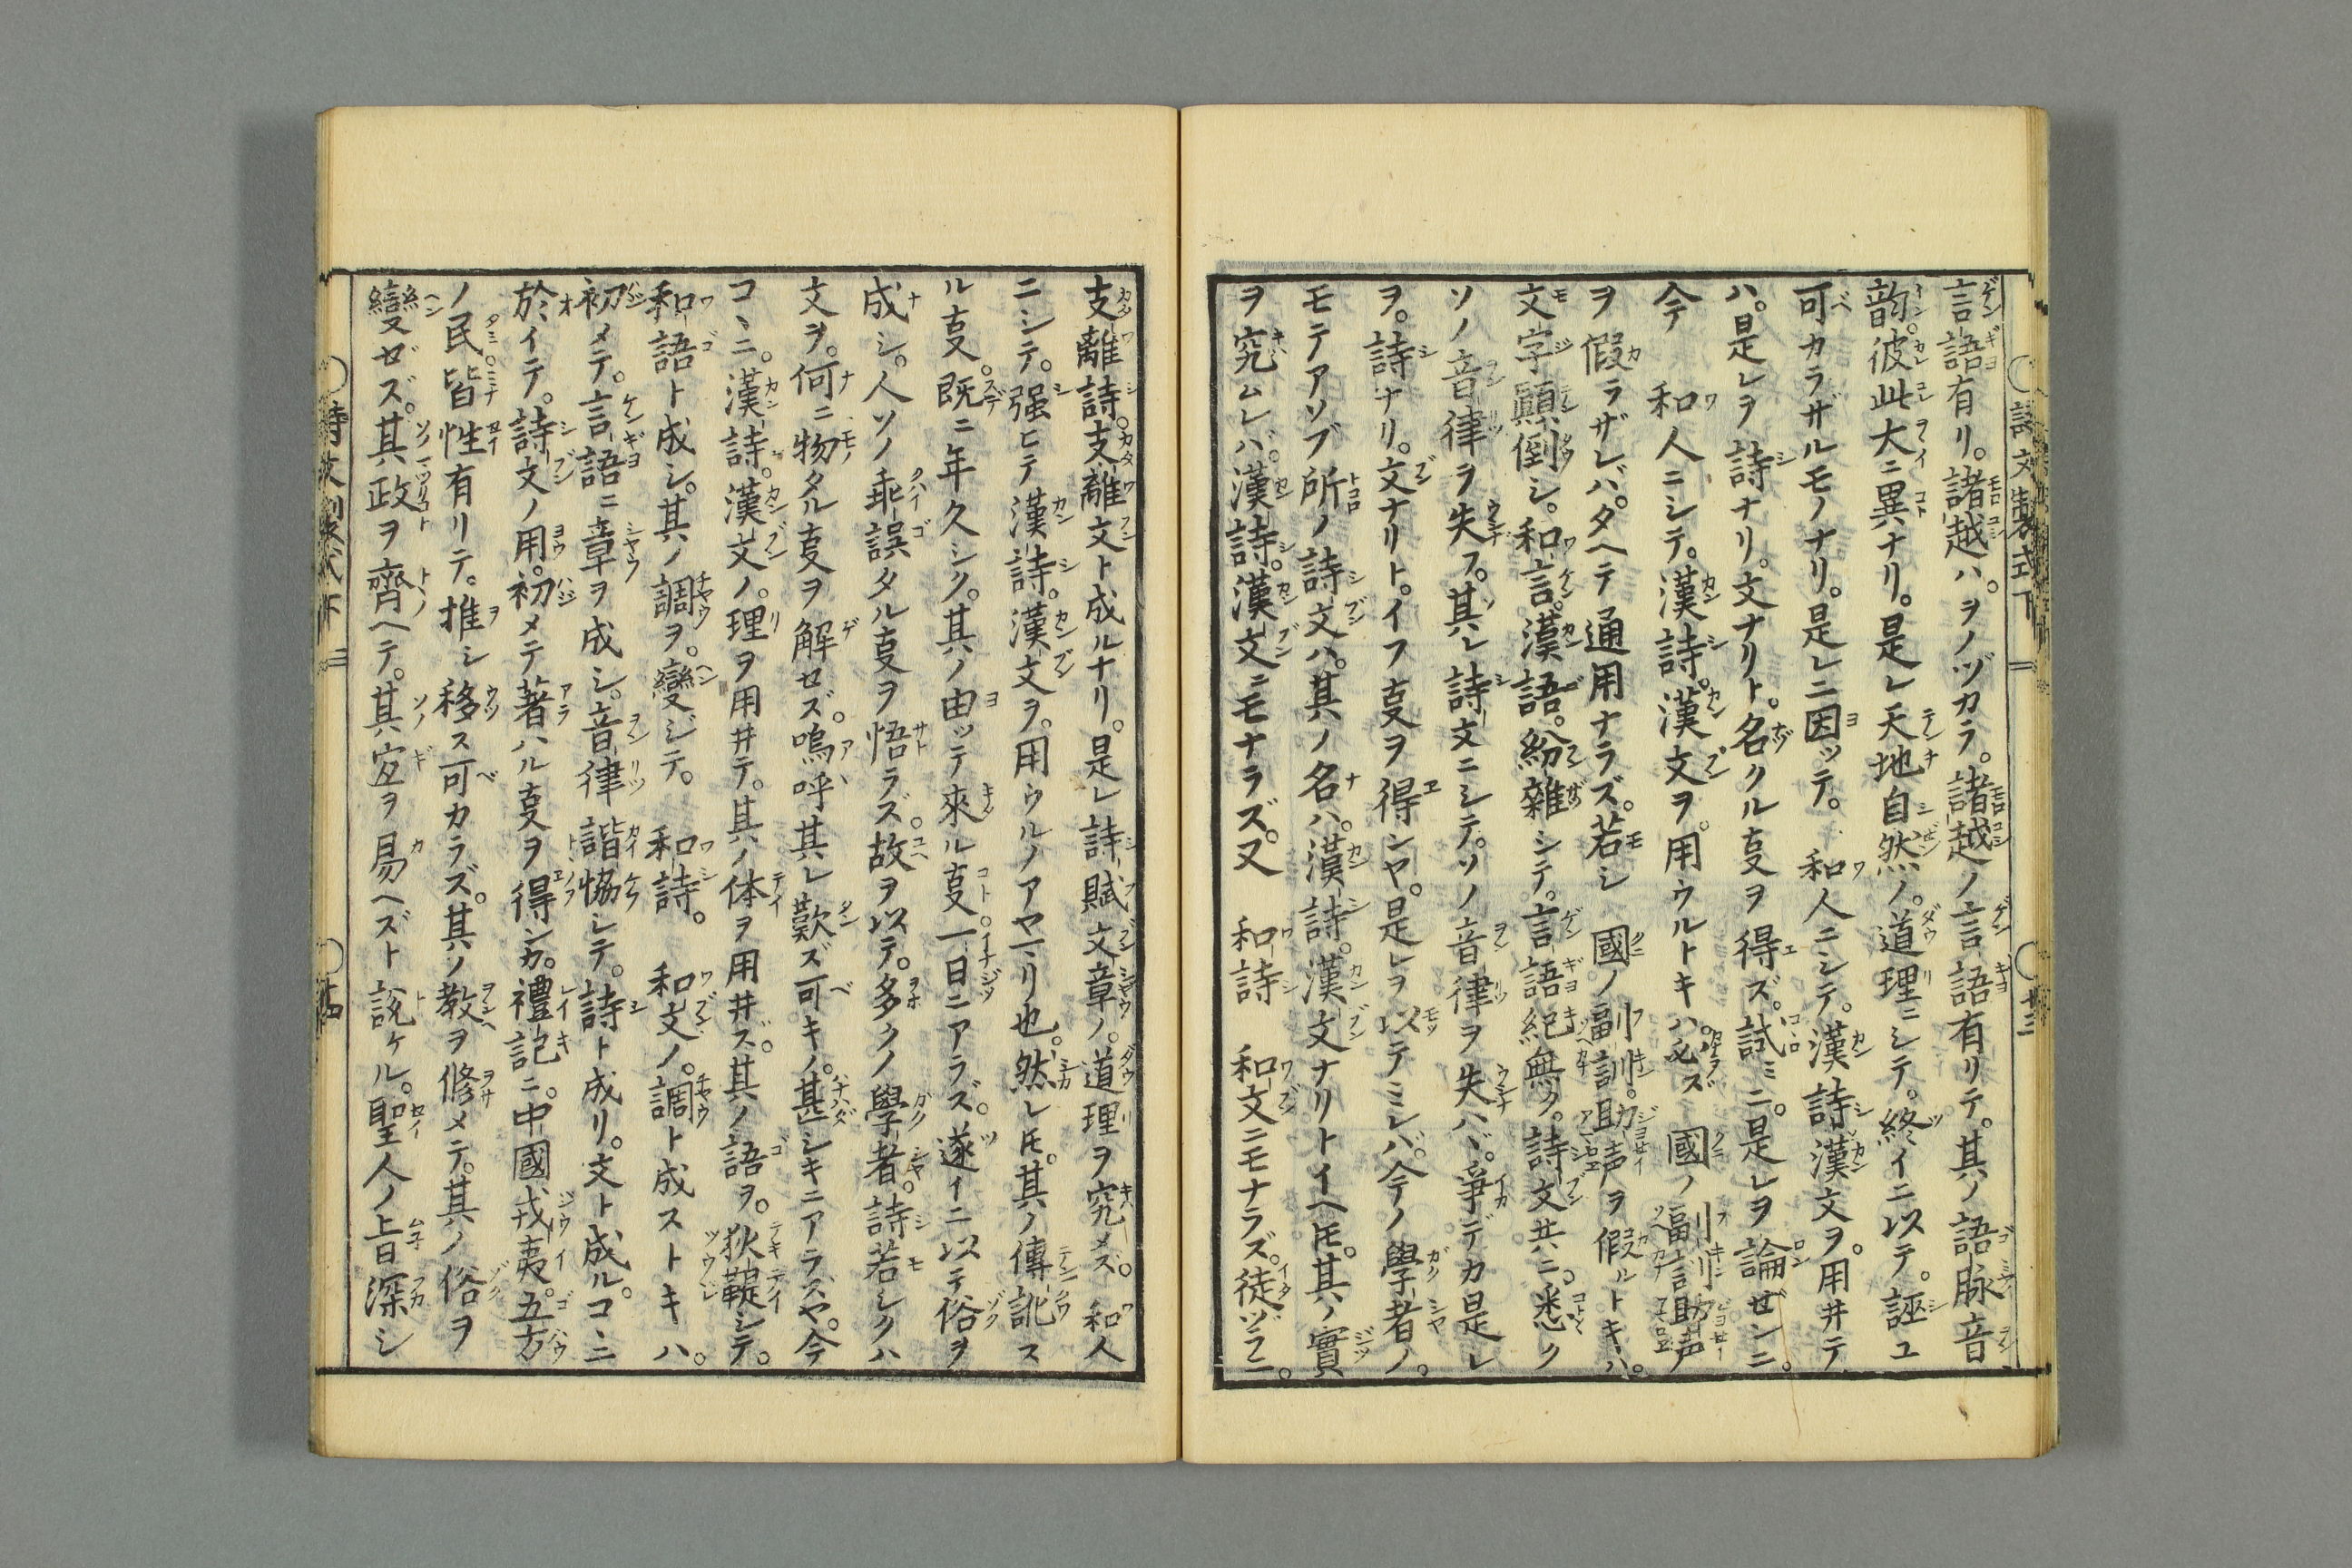 言語有リ。諸越ハ。ヲノヅカラ。諸越ノ言語有リテ。其ノ語脉音
韵。彼此大ニ異ナリ。是レ天地自然ノ。道理ニシテ。終イニ以テ。誣ユ
可カラザルモノナリ。是レニ因ッテ。 和人ニシテ。漢詩漢文ヲ。用井テ
ハ。是レヲ詩ナリ。文ナリト。名クル𫝆ヲ得ズ。試ミニ。是レヲ論ゼンニ。
今 和人ニシテ。漢詩。漢文ヲ。用ウルトキハ。必ズ 國ノ副訓助声
ヲ假ラザレバ。タヘテ通用ナラズ。若シ 國ノ副訓。助声ヲ假ルトキハ。
文字顛倒シ。和言。漢語。紛雜シテ。言語絶無ク。詩文共ニ。悉ク
ソノ音律ヲ失フ。其レ詩文ニシテ。ソノ音律ヲ失ハヾ。爭デカ是レ
ヲ。詩ナリ。文ナリト。イフ叓ヲ得ンヤ。是レヲ以テミレバ。今ノ學者ノ。
モテアソブ所ノ詩文ハ。其ノ名ハ。漢詩。漢文ナリトイヘ𪜈。其ノ實
ヲ究ムレバ。漢詩。漢文ニモナラズ。又 和詩 和文ニモナラズ。徒ヅラニ。
支離詩。支離文ト成ルナリ。是レ詩賦文章ノ。道理ヲ究メズ。 和人
ニシテ。强ヒテ漢詩。漢文ヲ。用ウルノアヤマリ也。然レ𪜈。其ノ傳訛ス
ル叓。既ニ年久シク。其ノ由ッテ來ル叓一日ニアラズ。遂イニ以テ俗ヲ
成シ。人ソノ乖誤タル叓ヲ悟ラズ。故ヲ以テ。多クノ學者。詩若シクハ
文ヲ。何ニ物タル叓ヲ解セズ。嗚呼其レ歎ズ可キノ。甚シキニアラズヤ。今
コヽニ。漢詩。漢文ノ。理ヲ用井テ。其ノ体ヲ用井ズ。其ノ語ヲ。狄鞮シテ。
和語ト成シ。其ノ調ヲ。變ジテ。 和詩。 和文ノ。調ト成ストキハ。
初メテ。言語ニ章ヲ成シ。音律諧恊シテ。詩ト成リ。文ト成ル。コヽニ
於イテ。詩文ノ用。初メテ著ハル叓ヲ得ンカ。禮記ニ。中國戎夷。五方
ノ民。皆性有リテ。推シ移ス可カラズ。其ノ教ヲ修メテ。其ノ俗ヲ
變ゼズ。其政ヲ齊ヘテ。其宜ヲ易ヘズト說ケル。聖人ノ旨深シ